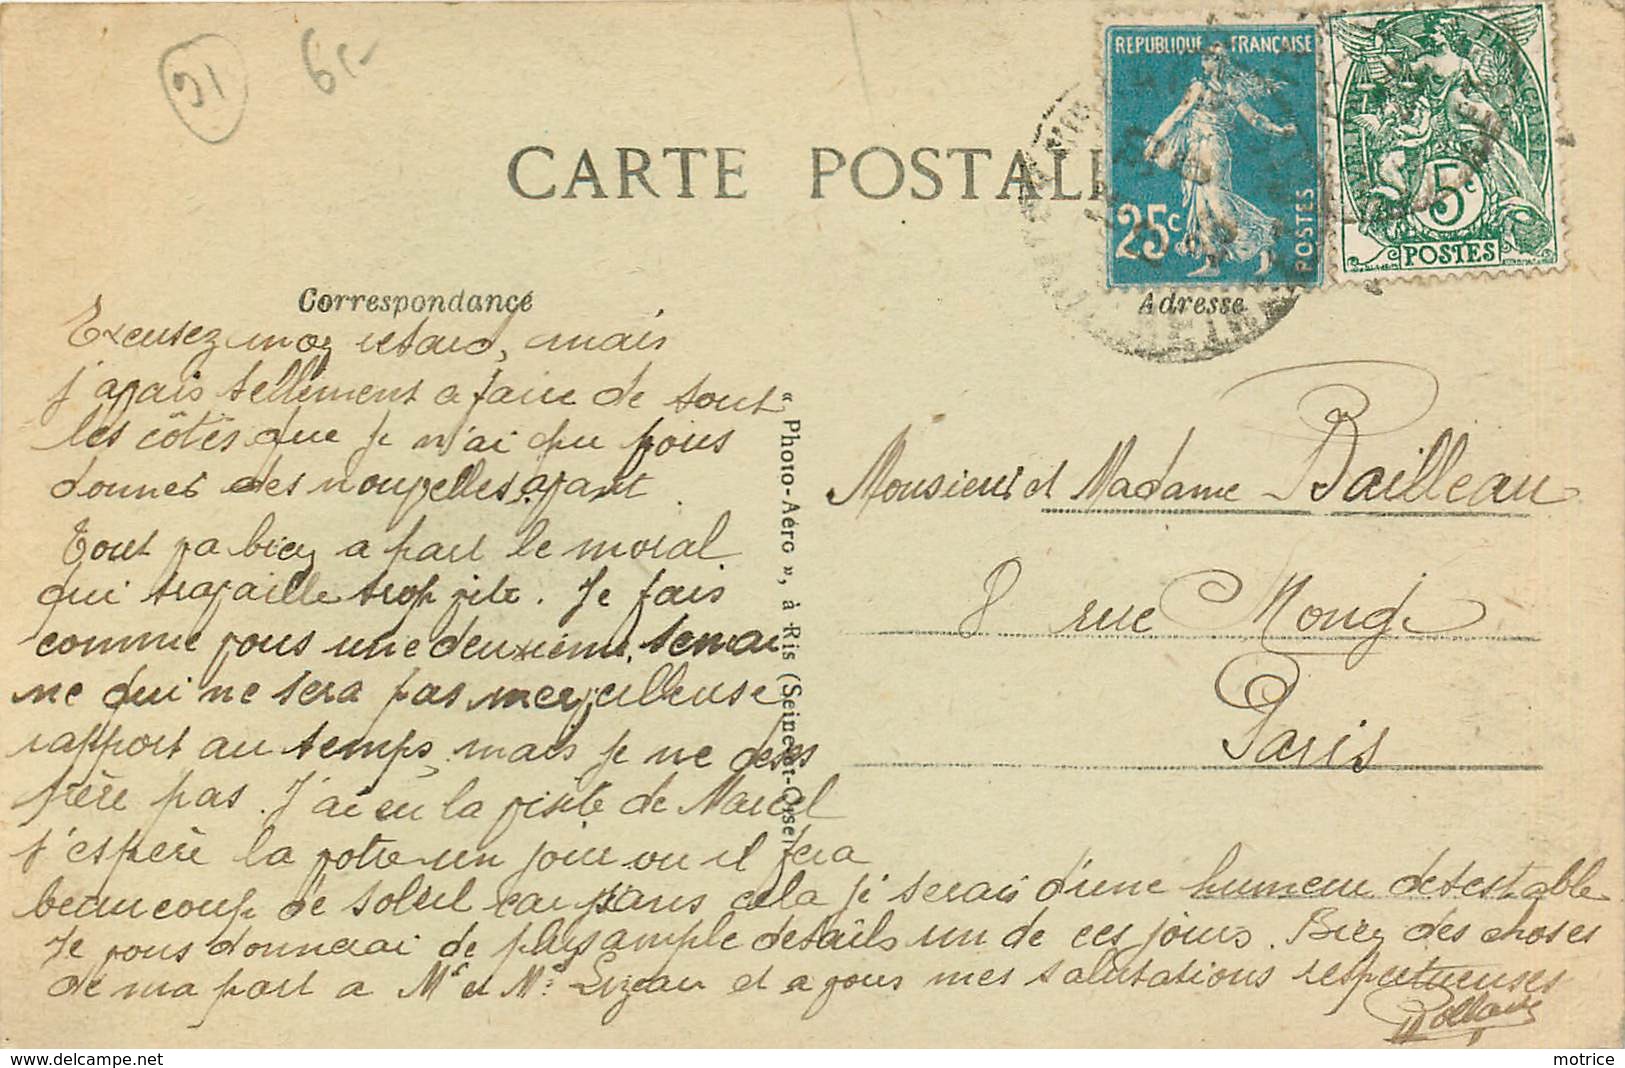 91
6,-
REPUBLIQUE FRANÇAISE
25c
POSTES
5c
POSTES
CARTE POSTALE
Correspondance
Adresse
Excusez mon retard, mais
j'avais tellement a faire de tout
les côtés que je n'ai pu vous
donner des nouvelles avant.
Tout va bien a part le moral
qui travaille trop vite. Je fais
comme vous une deuxième semai
ne qui ne sera pas merveilleuse
rapport au temps, mais je ne deses
père pas. J'ai eu la visite de Marcel
j'espère la votre un jour ou il fera
beaucoup de soleil car sans cela je serais d'une humeur detestable
Je vous donnerai de plus ample details un de ces jours. Bien des choses
de ma part a Mr et Me et a vous mes salutations respectueuses
"Photo-Aéro", à Ris (Seine-et-Oise)
Monsieur et Madame Bailleau
8 rue Monge
Paris
delcampe.net
motrice